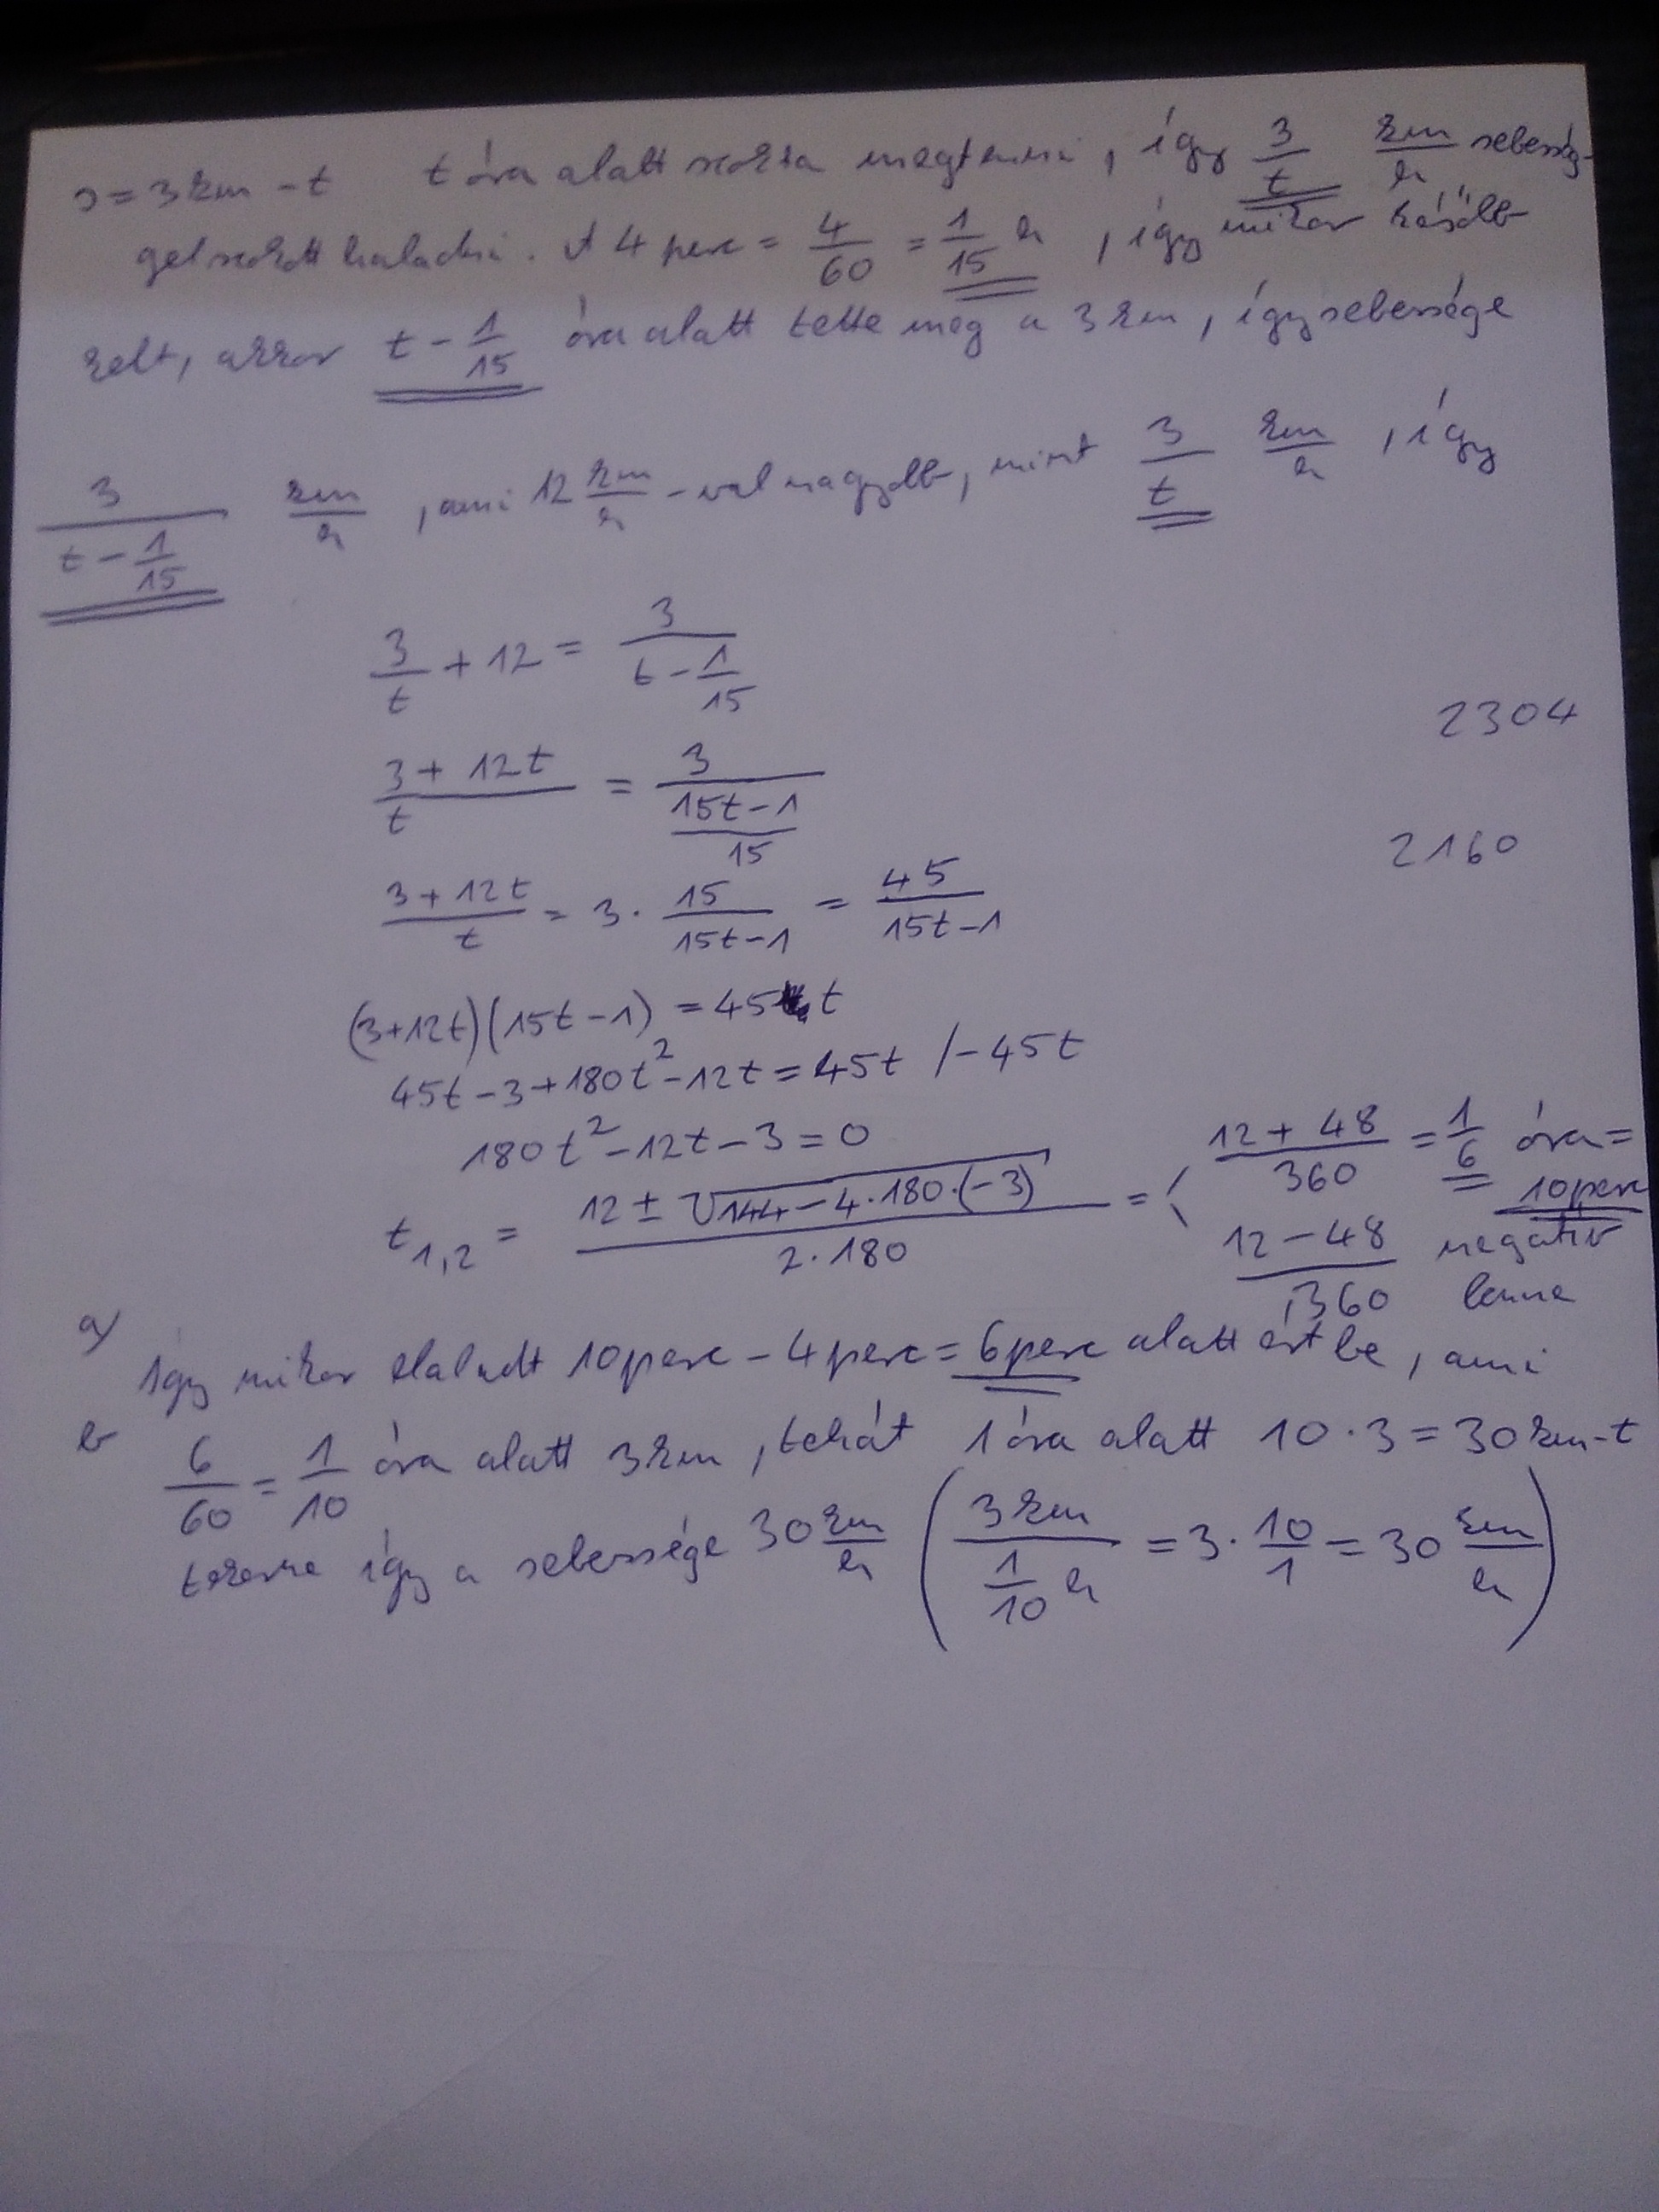 s = 3 km-t t óra alatt szokta megtenni, így 3/t km/h sebesség-
gel szokott haladni. A 4 perc = 4/60 = 1/15 h, így mikor később
kelt, akkor t - 1/15 óra alatt tette meg a 3 km, így sebessége
3/(t - 1/15) km/h, ami 12 km/h-val nagyobb, mint 3/t km/h, így
3/t + 12 = 3/(t - 1/15)
2304
(3 + 12t)/t = 3/((15t - 1)/15)
2160
(3 + 12t)/t = 3 · 15/(15t - 1) = 45/(15t - 1)
(3+12t)(15t - 1) = 45t
45t - 3 + 180t² - 12t = 45t /-45t
180t² - 12t - 3 = 0
t1,2 = (12 ± √(144 - 4·180·(-3)))/(2·180) = < (12 + 48)/360 = 1/6 óra = 10 perc
(12 - 48)/360 negatív lenne
a) Így mikor elaludt 10 perc - 4 perc = 6 perc alatt ért be, ami
b 6/60 = 1/10 óra alatt 3 km, tehát 1 óra alatt 10 · 3 = 30 km-t
tekerne így a sebessége 30 km/h (3 km/(1/10 h) = 3 · 10/1 = 30 km/h)